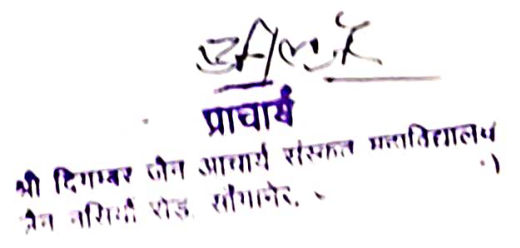 प्राचार्य
श्री दिगम्बर जैन आचार्य संस्कृत महाविद्यालय
जैन नसियाँ रोड, साँगानेर,